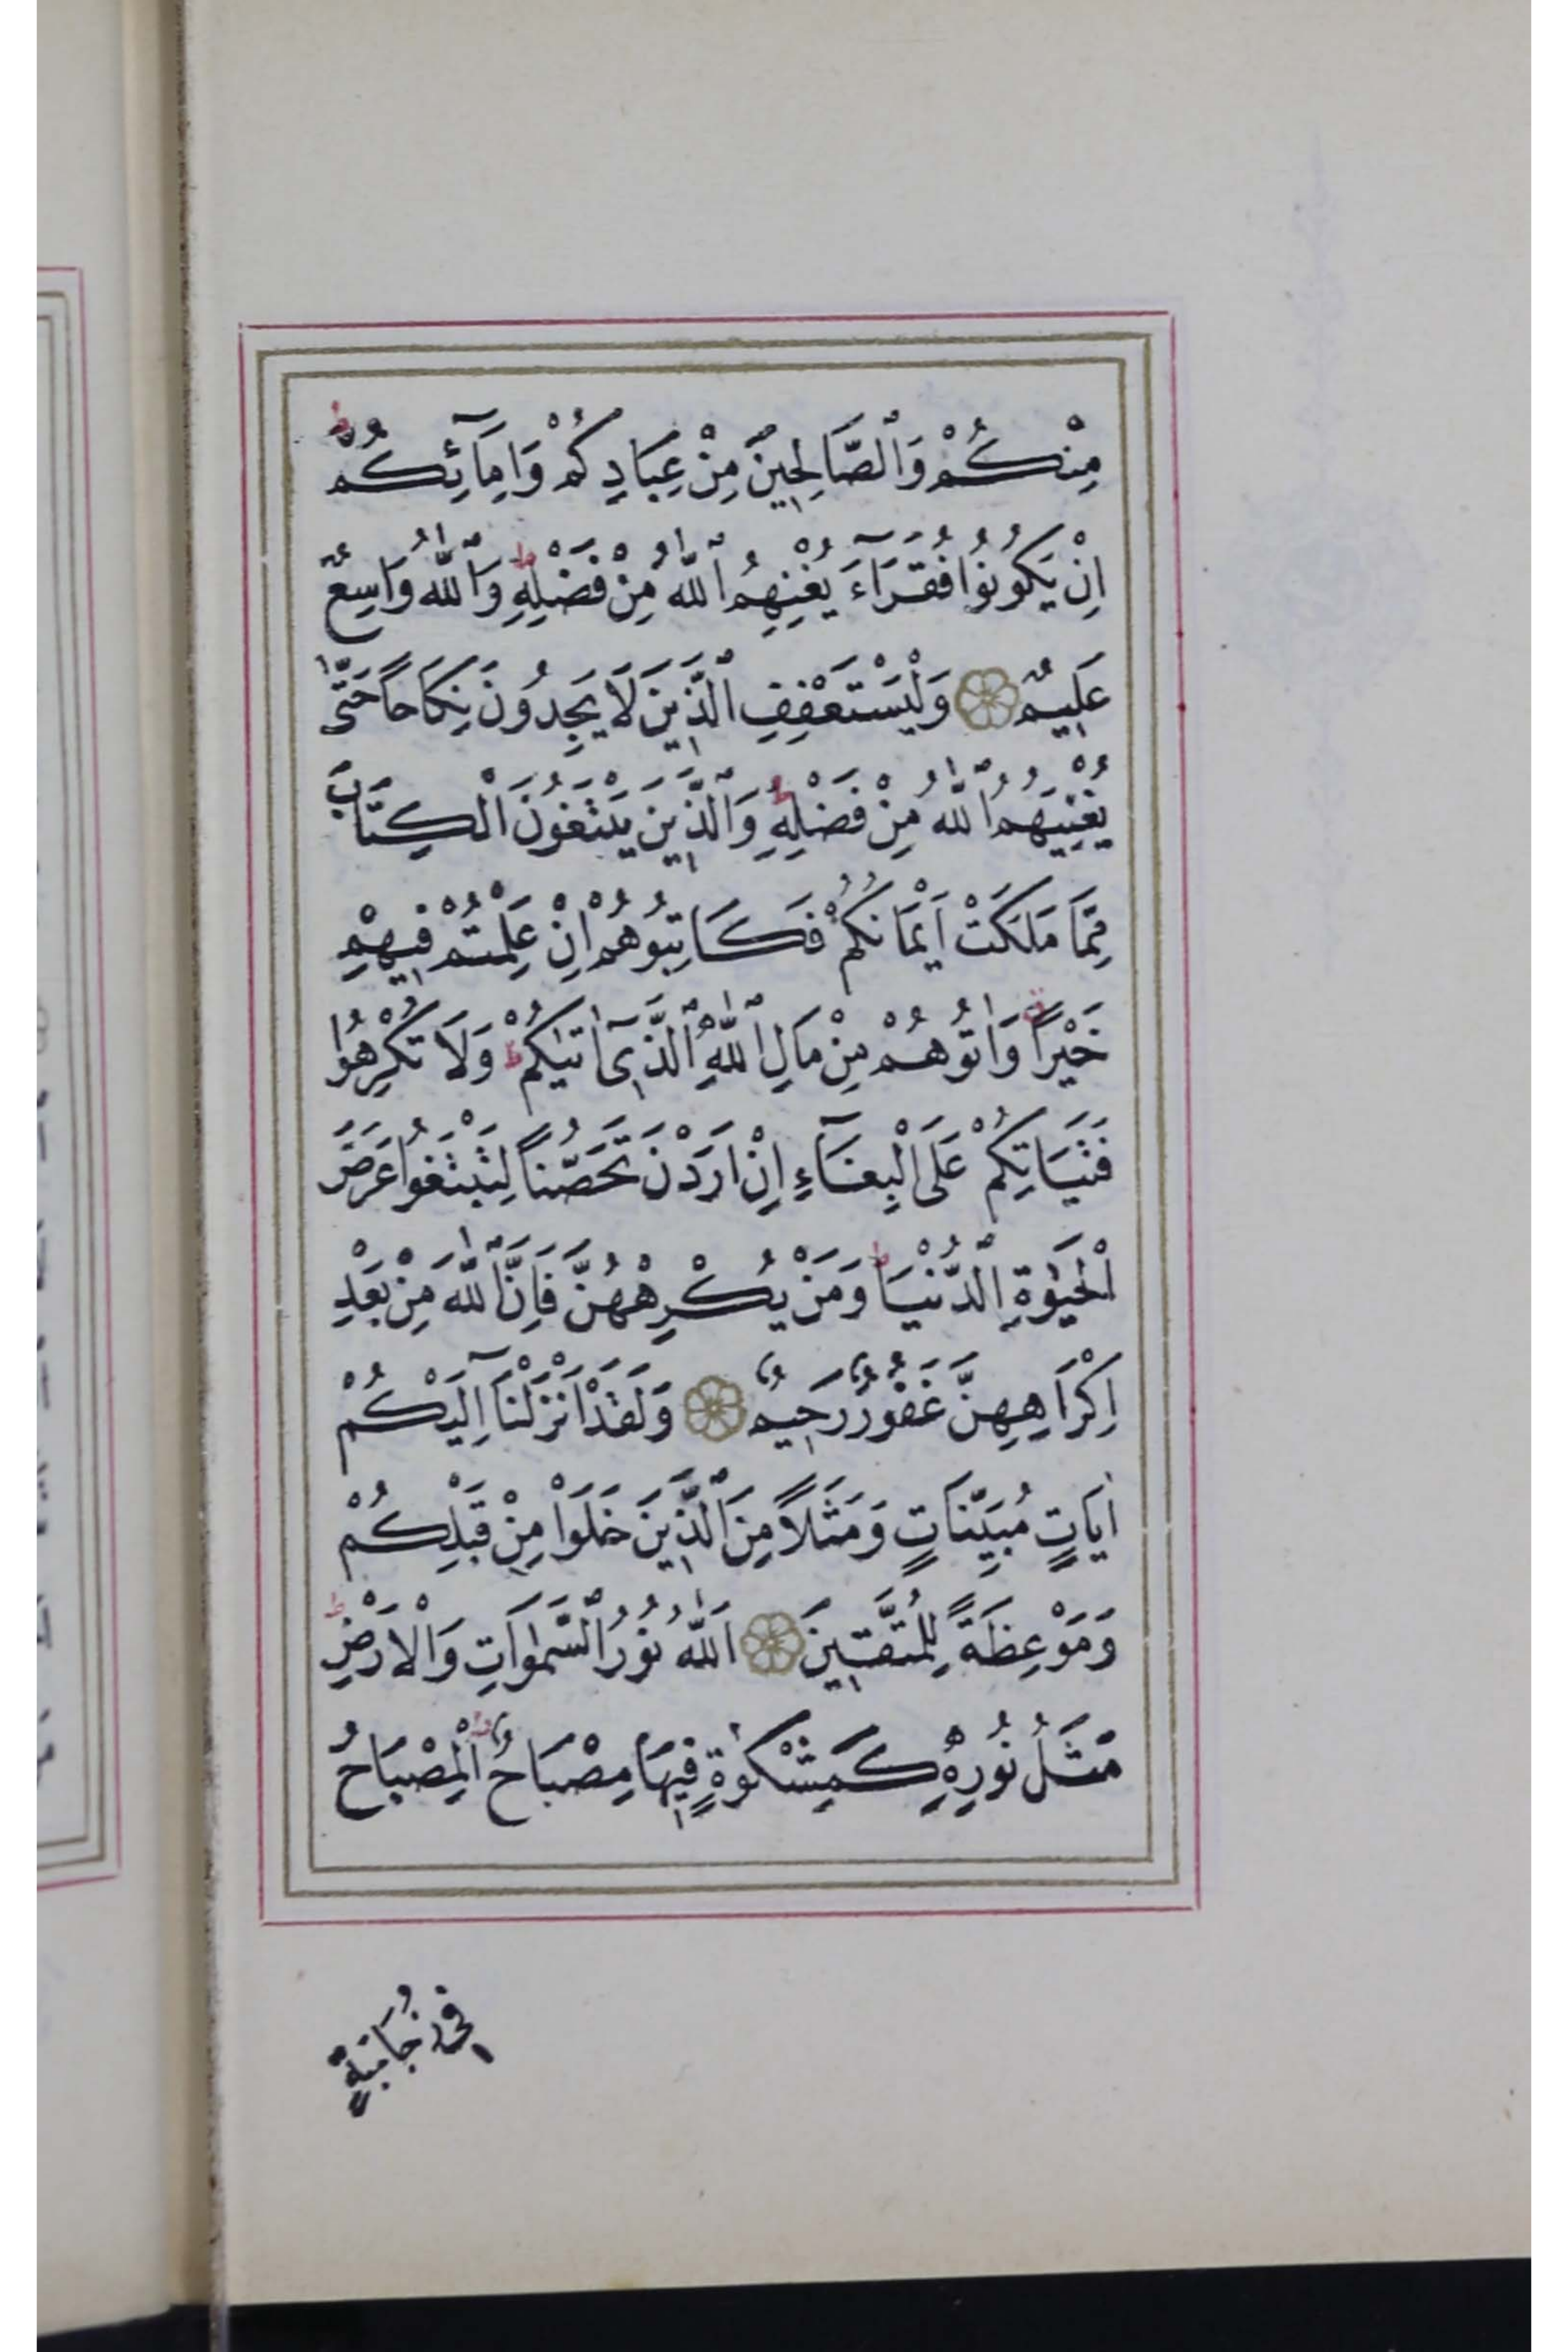 مِنْكُمْ وَٱلصَّالِحِينَ مِنْ عِبَادِكُمْ وَاِمَآئِكُمْ ط
اِنْ يَكُونُوا فُقَرَآءَ يُغْنِهِمُ ٱللّٰهُ مِنْ فَضْلِهِ ط وَٱللّٰهُ وَاسِعٌ
عَلِيمٌ وَلْيَسْتَعْفِفِ ٱلَّذِينَ لَا يَجِدُونَ نِكَاحًا حَتّٰى
يُغْنِيَهُمُ ٱللّٰهُ مِنْ فَضْلِهِ ط وَٱلَّذِينَ يَبْتَغُونَ الْكِتَابَ
مِمَّا مَلَكَتْ اَيْمَانُكُمْ فَكَاتِبُوهُمْ اِنْ عَلِمْتُمْ فِيهِمْ
خَيْرًا ق وَاٰتُوهُمْ مِنْ مَالِ ٱللّٰهِ ٱلَّذِىٓ اٰتٰيكُمْ ط وَلَا تُكْرِهُوا
فَتَيَاتِكُمْ عَلَى الْبِغَآءِ اِنْ اَرَدْنَ تَحَصُّنًا لِتَبْتَغُوا عَرَضَ
الْحَيٰوةِ ٱلدُّنْيَا ط وَمَنْ يُكْرِهْهُنَّ فَاِنَّ ٱللّٰهَ مِنْ بَعْدِ
اِكْرَاهِهِنَّ غَفُورٌ رَحِيمٌ وَلَقَدْ اَنْزَلْنَآ اِلَيْكُمْ
اٰيَاتٍ مُبَيِّنَاتٍ وَمَثَلًا مِنَ ٱلَّذِينَ خَلَوْا مِنْ قَبْلِكُمْ
وَمَوْعِظَةً لِلْمُتَّقِينَ اَللّٰهُ نُورُ ٱلسَّمٰوَاتِ وَالْاَرْضِ ط
مَثَلُ نُورِهِ كَمِشْكٰوةٍ فِيهَا مِصْبَاحٌ ط اَلْمِصْبَاحُ
فِى زُجَاجَةٍ